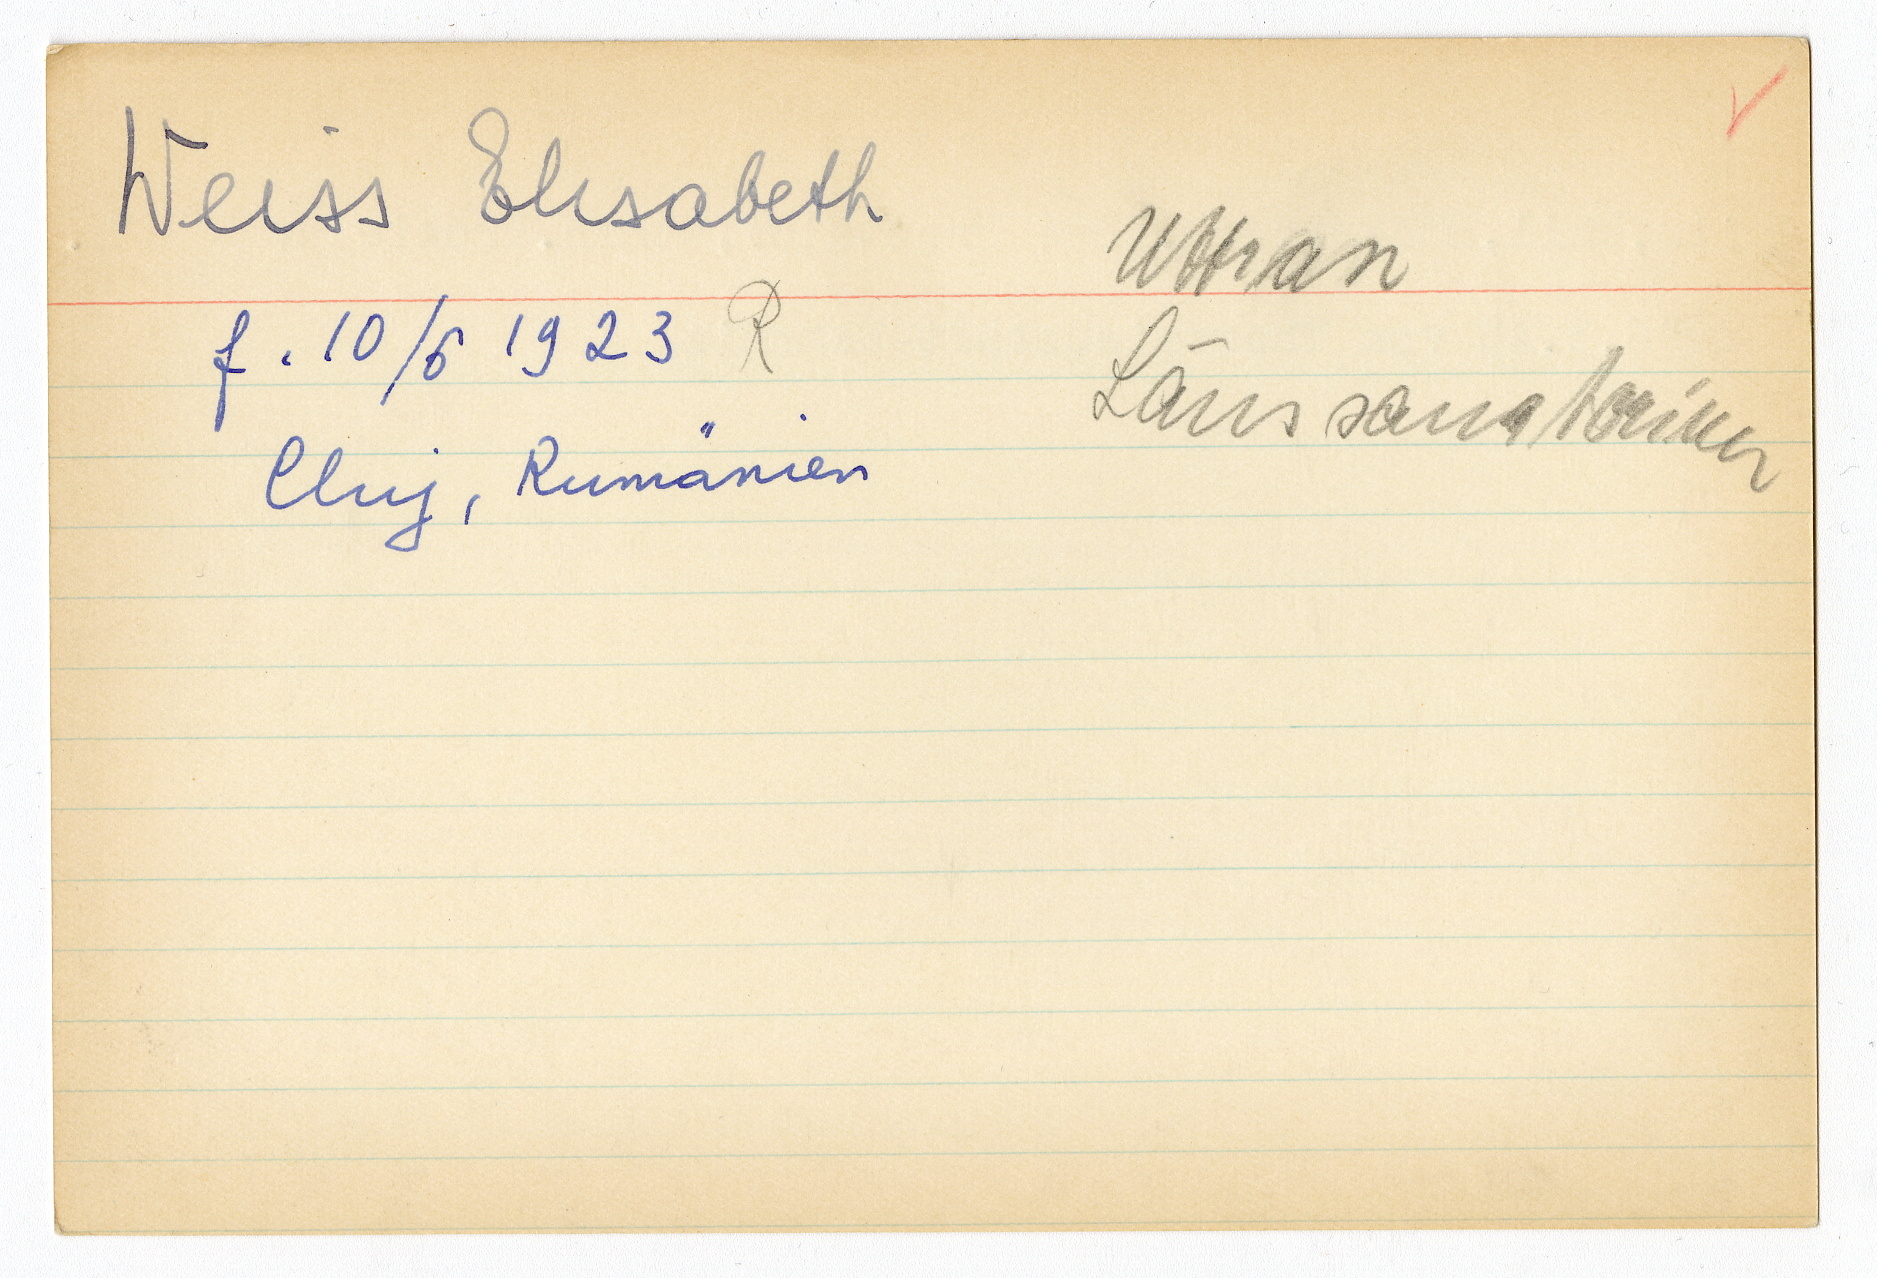 Weiss Elisabeth
Uttran
f. 10/6 1923 R
Länssanatorium
Cluj, Rumänien